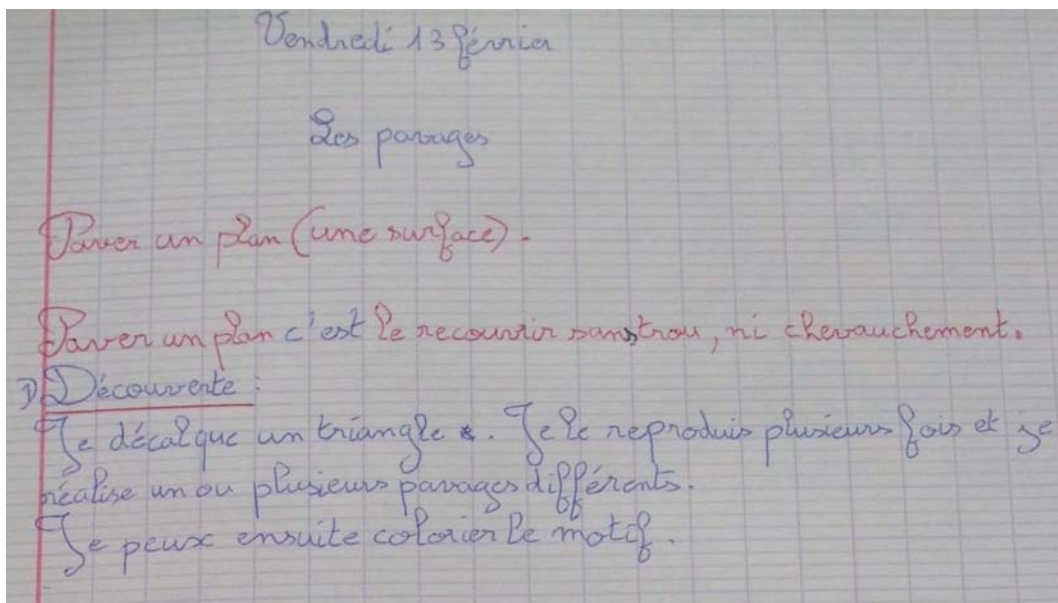 Vendredi 13 février
Les pavages
Paver un plan (une surface).
Paver un plan c'est le recouvrir sans trou, ni chevauchement.
1) Découverte :
Je décalque un triangle . Je le reproduis plusieurs fois et je
réalise un ou plusieurs pavages différents.
Je peux ensuite colorier le motif.